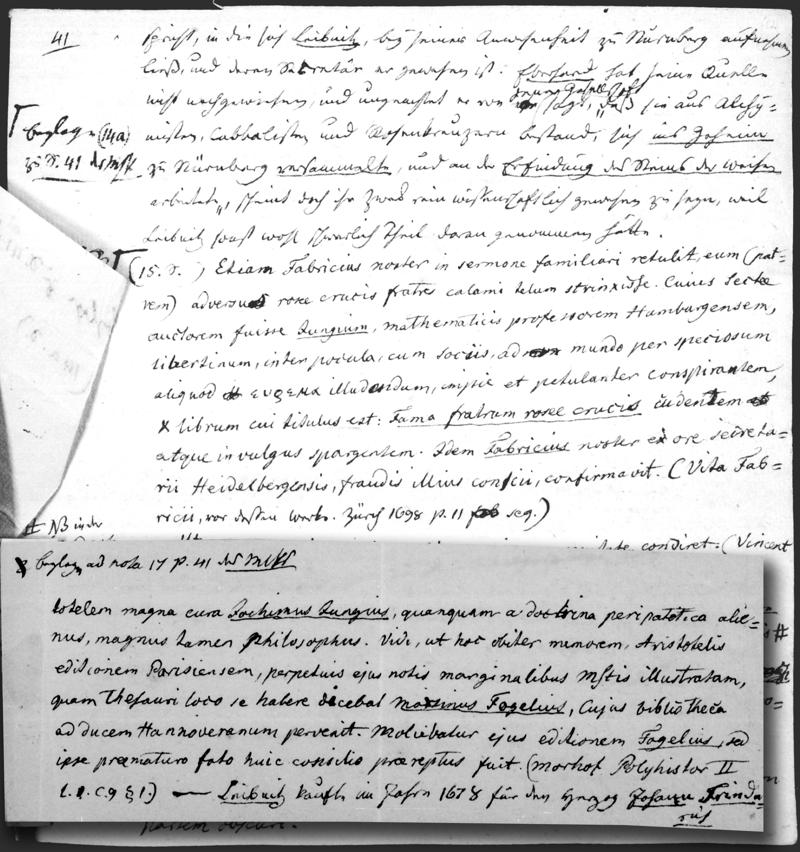 41
spricht, in die sich Leibnitz, bey seiner Anwesenheit zu Nürnberg aufnehmen
ließ, und deren Secretär er gewesen ist. Eberhard hat seine Quelle
nicht nachgewiesen, und ungeachtet er von jener Gesellschaft sagt, "daß sie aus Alchy-
misten, Cabbalisten und Rosenkreuzern bestand, sich ins Geheim
zu Nürnberg versammelte, und an der Erfindung des Steins der Weisen
arbeitete", scheint doch ihr Zweck rein wissenschaftlich gewesen zu seyn, weil
Leibnitz sonst wohl schwerlich Theil daran genommen hätte.
Beylage (14a)
zu S. 41 des Mst
(15. S. ) Etiam Fabricius noster in sermone familiari retulit, eum (pat-
rem) adversus roseæ crucis fratres calami telum strinxisse. Cuius Sectæ
auctorem fuisse Jungium, mathematicis professorem Hamburgensem,
libertinum, inter pocula, cum sociis, ad mundo per speciosum
aliquod ευρεμα illudendum, impie et petulanter conspirantem,
& librum cui titulus est: Fama fratrum roseæ crucis cudentem
atque in vulgus spargentem. Idem Fabricius noster ex ore secreta=
rii Heidelbergensis, fraudis illius conscii, confirmavit. (Vita Fab=
ricii, vor dessen Werke. Zürch 1698 p. 11 seq.)
NB in der
condiret. (Vincent
Beylage ad nota 17 p. 41 des Mst
totelem magna cura Jochimus Jungius, quanquam a doctrina peripatetica alie=
nus, magnus tamen philosophus. Vidi, ut hoc obiter memorem, Aristotelis
editionem Parisiensem, perpetuis ejus notis marginalibus Mstis illustratam,
quam thesauri loco se habere dicebat Martinus Fogelius, Cujus bibliotheca
ad ducem Hannoveranum pervenit. Moliebatur ejus editionem Fogelius, sed
ipse præmaturo fato huic consilio præreptus fuit. (Morhof Polyhistor II
L. 1. c. 9 § 1.) — Leibnitz kaufte im Jahre 1678 für den Herzog Johann Frieda
rich
partem obscuri.